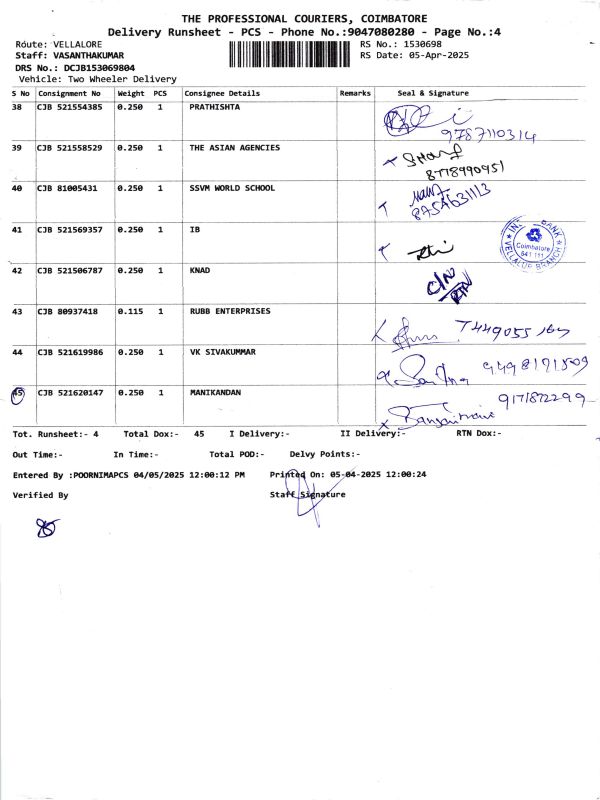 THE PROFESSIONAL COURIERS, COIMBATORE
Delivery Runsheet - PCS - Phone No.:9047080280 - Page No.:4
Route: VELLALORE RS No.: 1530698
Staff: VASANTHAKUMAR RS Date: 05-Apr-2025
DRS No.: DCJB153069804
Vehicle: Two Wheeler Delivery
S No Consignment No Weight PCS Consignee Details Remarks Seal & Signature
38 CJB 521554385 0.250 1 PRATHISHTA
9787110314
39 CJB 521558529 0.250 1 THE ASIAN AGENCIES
8778990951
40 CJB 81005431 0.250 1 SSVM WORLD SCHOOL
8754631113
41 CJB 521569357 0.250 1 IB
BANK
Coimbatore
641 111
VELLALUR BRANCH
42 CJB 521506787 0.250 1 KNAD
C/N
RTN
43 CJB 80937418 0.115 1 RUBB ENTERPRISES
44 CJB 521619986 0.250 1 VK SIVAKUMMAR
9498191509
45 CJB 521620147 0.250 1 MANIKANDAN
9171872299
Tot. Runsheet:- 4 Total Dox:- 45 I Delivery:- II Delivery:- RTN Dox:-
Out Time:- In Time:- Total POD:- Delvy Points:-
Entered By :POORNIMAPCS 04/05/2025 12:00:12 PM Printed On: 05-04-2025 12:00:24
Verified By Staff Signature